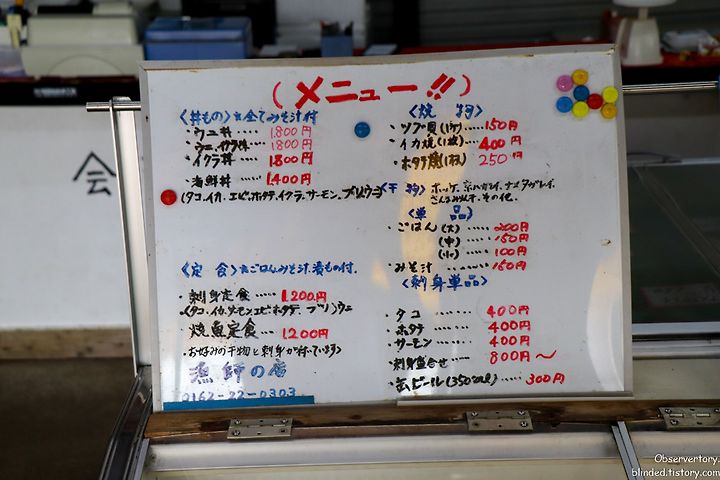 会
(メニュー!!)
〈丼もの〉☆全てみそ汁付
・ウニ丼‥‥1,800円
・ウニ、イクラ丼‥‥1,800円
・イクラ丼‥‥1,800円
・海鮮丼‥‥1,400円
(タコ、イカ、エビ、ホタテ、イクラ、サーモン、ブリ、ウニ)
〈定食〉☆ごはん、みそ汁、漬もの付.
・刺身定食‥‥1,200円
(タコ、イカ、サーモン、エビ、ホタテ、ブリ)ウニ
・焼魚定食‥‥1,200円
・お好みの干物と刺身が付いています〉
漁師の店
0162-22-0303
〈焼物〉
・ツブ貝(1ケ)‥‥150円
・イカ焼(1枚)‥‥400円
・ホタテ焼(1枚)250円
〈干物〉ホッケ、宗八ガレイ、ナメタガレイ、
さんまみりん干、その他、
〈単品〉
・ごはん(大)‥‥200円
(中)‥‥150円
(小)‥‥100円
・みそ汁‥‥‥150円
〈刺身単品〉
・タコ 400円
・ホタテ 400円
・サーモン 400円
・刺身盛合せ‥‥800円〜
・缶ビール(350ml)‥‥300円
Observertory.
blinded.tistory.com